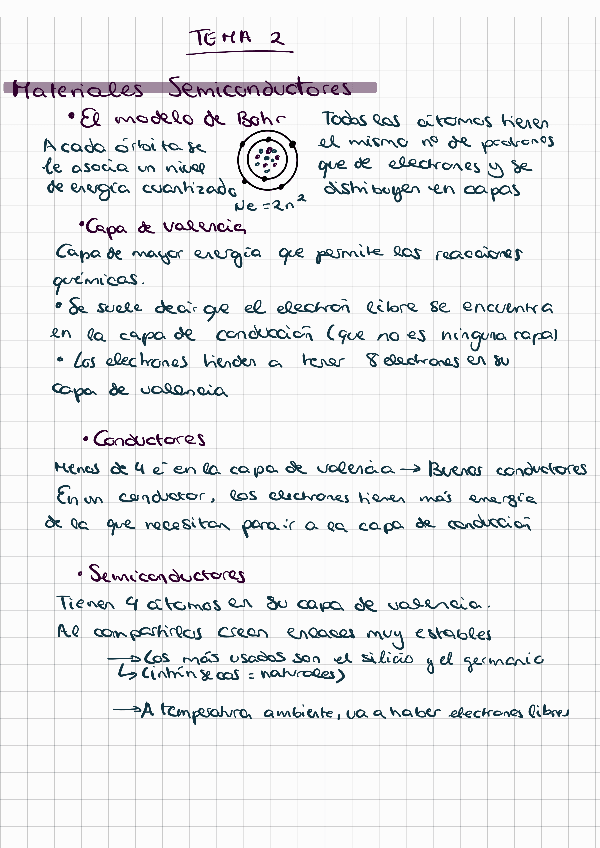 TEMA 2
Materiales Semiconductores
• El modelo de Bohr
A cada órbita se
le asocia un nivel
de energía cuantizado
Ne = 2n²
Todos los átomos tienen
el mismo nº de protones
que de electrones y se
distribuyen en capas
• Capa de valencia
Capa de mayor energía que permite las reacciones
químicas.
• Se suele decir que el electrón libre se encuentra
en la capa de conducción (que no es ninguna capa)
• Los electrones tienden a tener 8 electrones en su
capa de valencia
• Conductores
Menos de 4 e⁻ en la capa de valencia → Buenos conductores
En un conductor, los electrones tienen más energía
de la que necesitan para ir a la capa de conducción
• Semiconductores
Tienen 4 átomos en su capa de valencia.
Al compartirlos crean enlaces muy estables
→ Los más usados son el silicio y el germanio
↳ (intrínsecos = naturales)
→ A temperatura ambiente, va a haber electrones libres